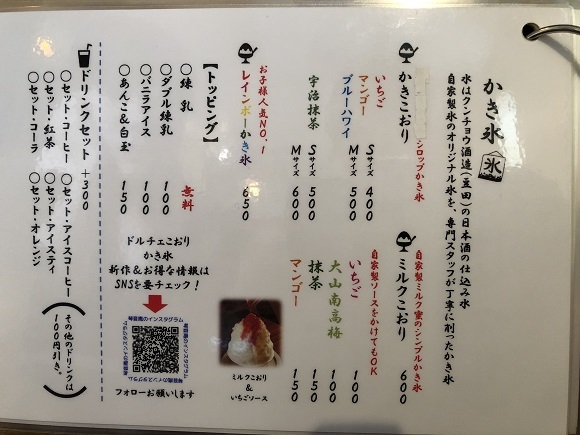 かき氷 (氷)
氷はクンチョウ酒造(豆田)の日本酒の仕込み水
自家製氷のオリジナル氷を、専門スタッフが丁寧に削ったかき氷
かきこおり
シロップかき氷
いちご
マンゴー
ブルーハワイ
Sサイズ 400
Mサイズ 500
宇治抹茶
Sサイズ 500
Mサイズ 600
お子様人気NO.1
レインボーかき氷 650
ミルクこおり 600
自家製ミルク蜜のシンプルかき氷
自家製ソースをかけてもOK
いちご 100
大山南高梅 100
抹茶 150
マンゴー 150
ミルクこおり
&
いちごソース
【トッピング】
○練乳 無料
○ダブル練乳 100
○バニラアイス 100
○あんこ&白玉 150
ドルチェこおり
かき氷
新作&お得な情報は
SNSを要チェック!
フォローお願いします
ドリンクセット +300
○セット・コーヒー
○セット・紅茶
○セット・コーラ
○セット・アイスコーヒー
○セット・アイスティ
○セット・オレンジ
(その他のドリンクは、
100円引き。)